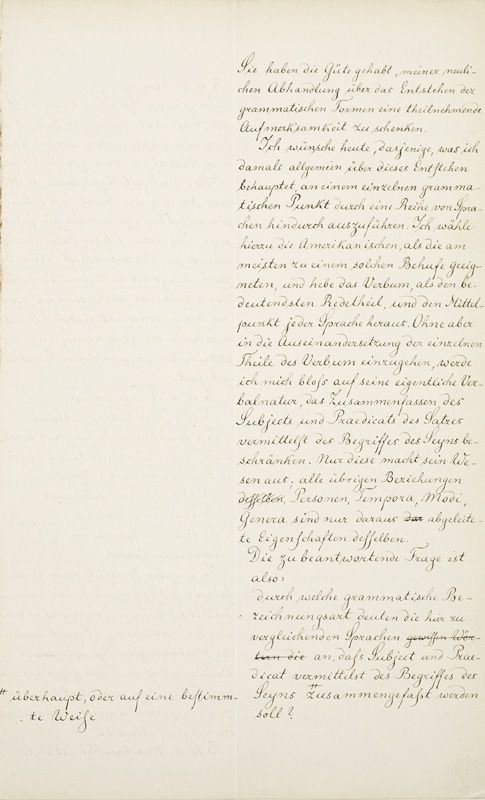 Sie haben die Güte gehabt, meiner neuli-
chen Abhandlung über das Entstehen der
grammatischen Formen eine theilnehmende
Aufmerksamkeit zu schenken.
Ich wünsche heute, dasjenige, was ich
damals allgemein über dieses Entstehen
behauptet, an einem einzelnen gramma-
tischen Punkt durch eine Reihe von Spra-
chen hindurch auszuführen. Ich wähle
hierzu die Amerikanischen, als die am
meisten zu einem solchen Behufe geeig-
neten, und hebe das Verbum, als den be-
deutendsten Redetheil, und den Mittel-
punkt jeder Sprache heraus. Ohne aber
in die Auseinandersetzung der einzelnen
Theile des Verbum einzugehen, werde
ich mich bloſs auf seine eigentliche Ver-
balnatur, das Zusammenfassen des
Subjects und Praedicats des Satzes
vermittelst des Begriffes des Seyns be-
schränken. Nur diese macht sein We-
sen aus; alle übrigen Beziehungen
desselben, Personen, Tempora, Modi,
Genera sind nur daraus das abgeleite-
te Eigenschaften desselben.
Die zu beantwortende Frage ist
also:
durch welche grammatische Be-
zeichnungsart deuten die hier zu
vergleichenden Sprachen gewissen Wör-
tern die an, daſs Subject und Prae-
dicat vermittelst des Begriffes des
Seyns # zusammengefaſst werden
soll?
# überhaupt, oder auf eine bestimm-
te Weise